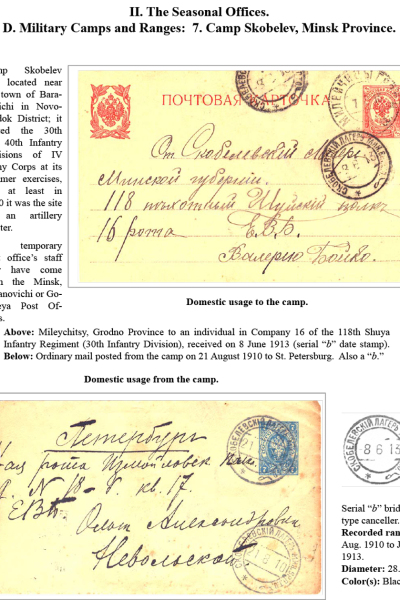 II. The Seasonal Offices.
D. Military Camps and Ranges: 7. Camp Skobelev, Minsk Province.
mp Skobelev
located near
town of Bara-
ichi in Novo-
dok District; it
ed the 30th
40th Infantry
isions of IV
ny Corps at its
mer exercises,
at least in
0 it was the site
an artillery
ter.
temporary
t office's staff
y have come
m the Minsk,
anovichi or Go-
eya Post Of-
s.
ПОЧТОВАЯ КАРТОЧКА
Минской губерніи.
118 пѣхотный Шуйскій полкъ
16 рота Е.В.Б.
Валерію Бойко.
Domestic usage to the camp.
Above: Mileychitsy, Grodno Province to an individual in Company 16 of the 118th Shuya
Infantry Regiment (30th Infantry Division), received on 8 June 1913 (serial "b" date stamp).
Below: Ordinary mail posted from the camp on 21 August 1910 to St. Petersburg. Also a "b."
Domestic usage from the camp.
Петербургъ
рота Измайловск.
N 18-й кв. 17.
Е.В.Б.
СКОБЕЛЕВСКІЙ ЛАГЕРЬ
8 6 13
Serial "b" brid
type canceller.
Recorded ran
Aug. 1910 to J
1913.
Diameter: 28.
Color(s): Blac